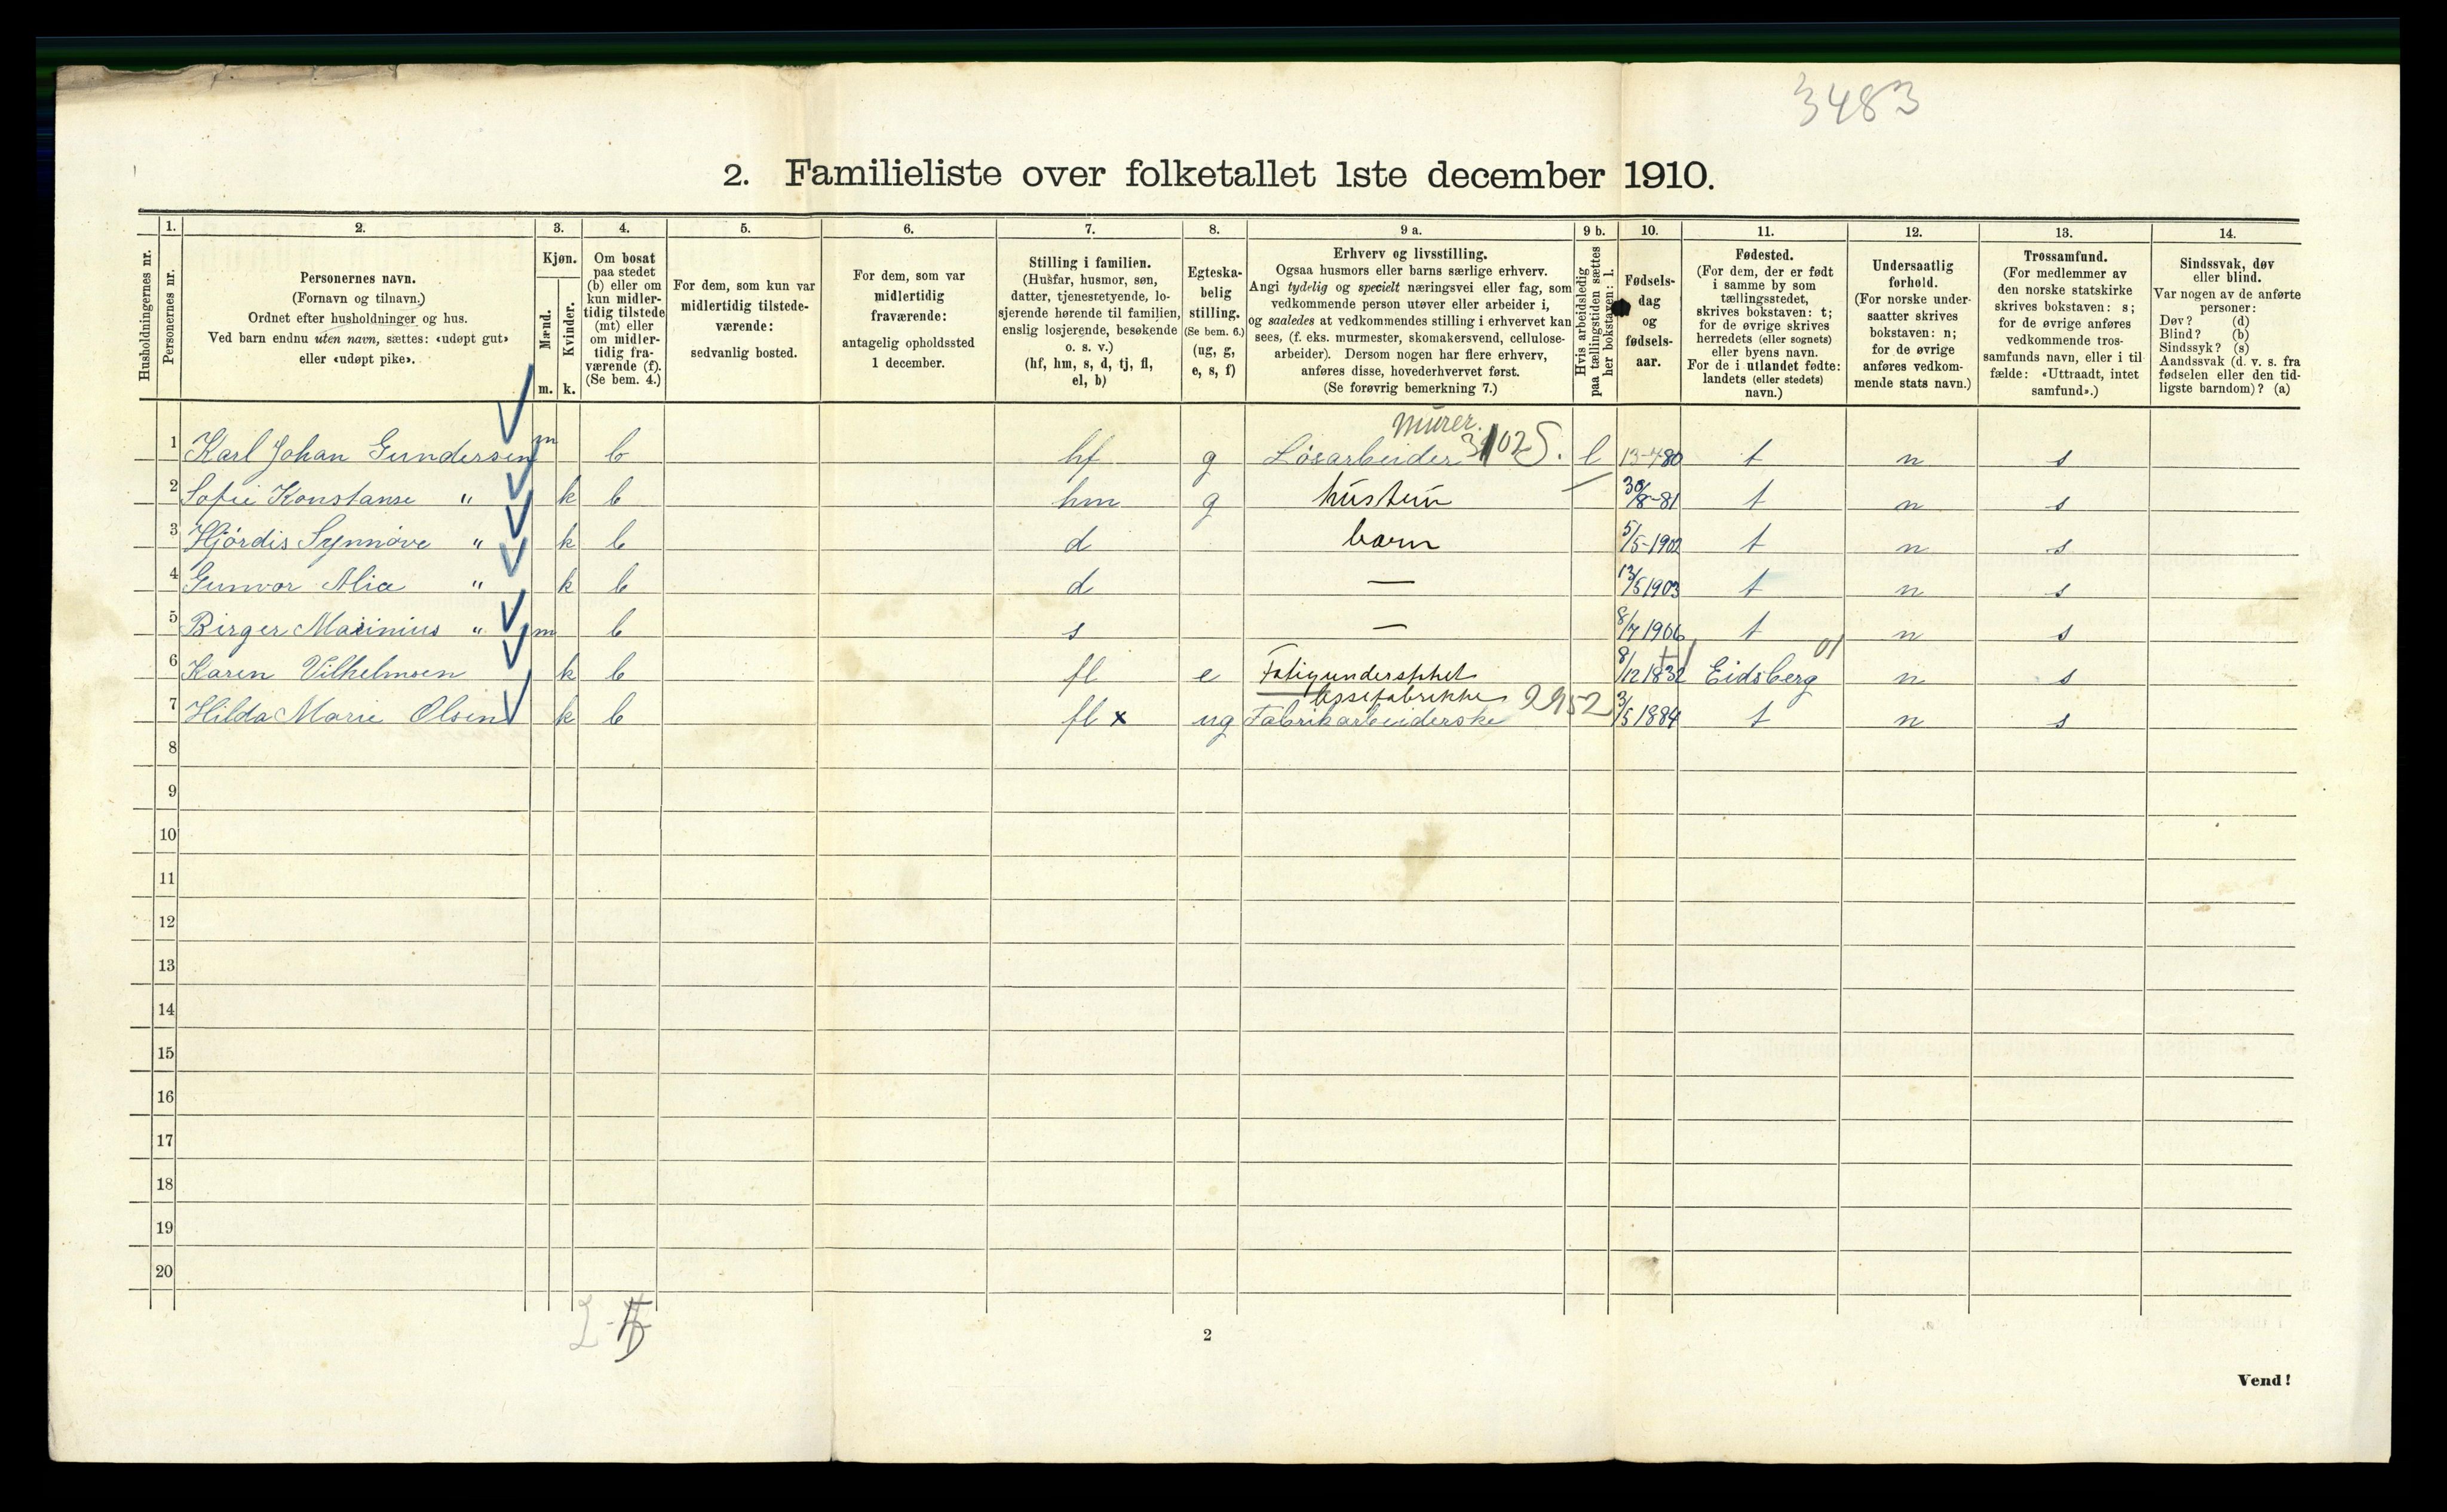 3483
2. Familieliste over folketallet 1ste december 1910.
1. 2. 3. 4. 5. 6. 7. 8. 9 a. 9 b. 10. 11. 12. 13. 14.
Husholdningernes nr.
Personernes nr.
Personernes navn.
(Fornavn og tilnavn.)
Ordnet efter husholdninger og hus.
Ved barn endnu uten navn, sættes: «udøpt gut»
eller «udøpt pike».
Kjøn.
Mænd.
Kvinder.
m. k.
Om bosat
paa stedet
(b) eller om
kun midler-
tidig tilstede
(mt) eller
om midler-
tidig fra-
værende (f).
(Se bem. 4.)
For dem, som kun var
midlertidig tilstede-
værende:
sedvanlig bosted.
For dem, som var
midlertidig
fraværende:
antagelig opholdssted
1 december.
Stilling i familien.
(Husfar, husmor, søn,
datter, tjenestetyende, lo-
sjerende hørende til familien,
enslig losjerende, besøkende
o. s. v.)
(hf, hm, s, d, tj, fl,
el, b)
Egteska-
belig
stilling.
(Se bem. 6.)
(ug, g,
e, s, f)
Erhverv og livsstilling.
Ogsaa husmors eller barns særlige erhverv.
Angi tydelig og specielt næringsvei eller fag, som
vedkommende person utøver eller arbeider i,
og saaledes at vedkommendes stilling i erhvervet kan
sees, (f. eks. murmester, skomakersvend, cellulose-
arbeider). Dersom nogen har flere erhverv,
anføres disse, hovederhvervet først.
(Se forøvrig bemerkning 7.)
Hvis arbeidsledig
paa tællingstiden sættes
her bokstaven: l.
Fødsels-
dag
og
fødsels-
aar.
Fødested.
(For dem, der er født
i samme by som
tællingsstedet,
skrives bokstaven: t;
for de øvrige skrives
herredets (eller sognets)
eller byens navn.
For de i utlandet fødte:
landets (eller stedets)
navn.)
Undersaatlig
forhold.
(For norske under-
saatter skrives
bokstaven: n;
for de øvrige
anføres vedkom-
mende stats navn.)
Trossamfund.
(For medlemmer av
den norske statskirke
skrives bokstaven: s;
for de øvrige anføres
vedkommende tros-
samfunds navn, eller i til-
fælde: «Uttraadt, intet
samfund».)
Sindssvak, døv
eller blind.
Var nogen av de anførte
personer:
Døv? (d)
Blind? (b)
Sindssyk? (s)
Aandssvak (d. v. s. fra
fødselen eller den tid-
ligste barndom)? (a)
Murer.
1 Karl Johan Gundersen m b hf g Løsarbeider S. l 13-4 80 t n s
2 Sofie Konstanse " k b hm g hustru 30/8-81 t n s
3 Hjördis Synnöve " k b d barn 5/5-1902 t n s
4 Gunvor Alice " k b d — 13/5 1903 t n s
5 Birger Marinius " m b s — 8/7 1906 t n s
01
6 Karen Vilhelmsen k b fl e Fatigunderstøttet 8/12 1832 Eidsberg n s
2952
7 Hilda Marie Olsen k b fl x ug Fabrikarbeiderske 3/5 1884 t n s
8
9
10
11
12
13
14
15
16
17
18
19
20
2-5
2
Vend!